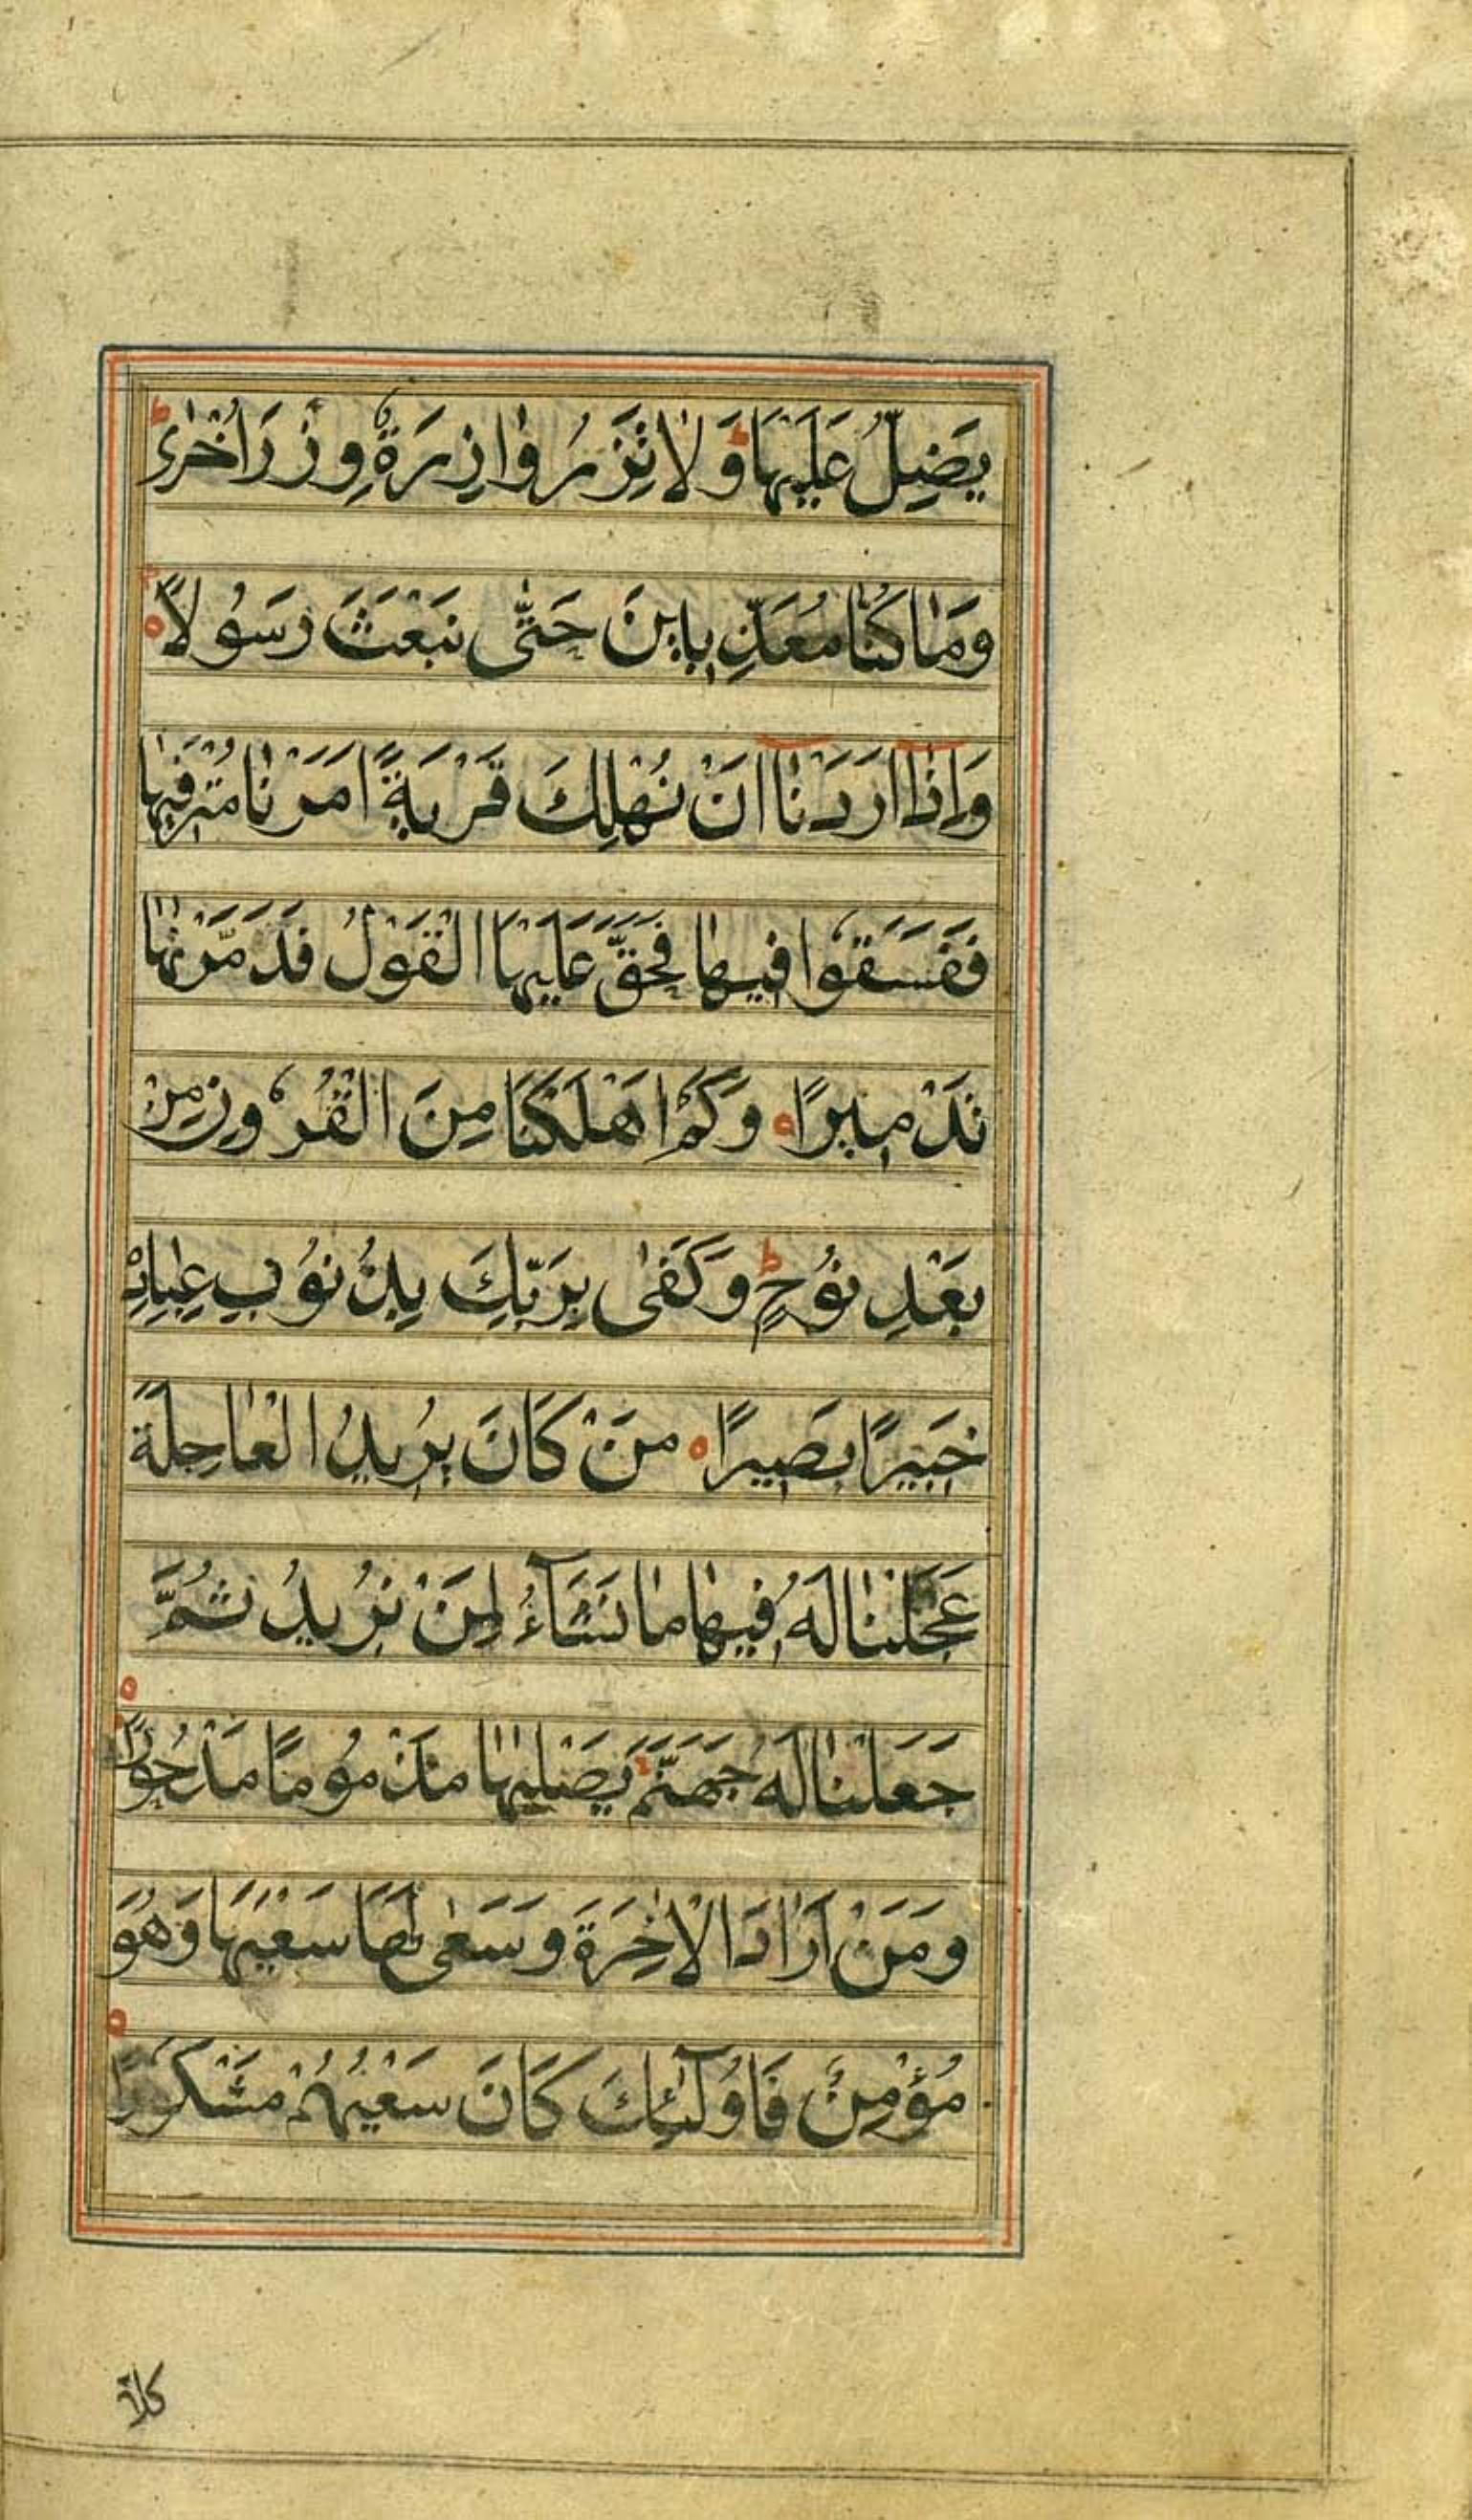 يَضِلُّ عَلَيْهَا ۖ وَلَا تَزِرُ وَازِرَةٌ وِزْرَ أُخْرٰى ط
وَمَا كُنَّا مُعَذِّبِينَ حَتّٰى نَبْعَثَ رَسُولًا ه
وَاِذَا اَرَدْنَا اَنْ نُهْلِكَ قَرْيَةً اَمَرْنَا مُتْرَفِيهَا
فَفَسَقُوا فِيهَا فَحَقَّ عَلَيْهَا الْقَوْلُ فَدَمَّرْنٰهَا
تَدْمِيرًا ه وَكَمْ اَهْلَكْنَا مِنَ الْقُرُونِ مِنْ
بَعْدِ نُوحٍ ط وَكَفٰى بِرَبِّكَ بِذُنُوبِ عِبَادِهٖ
خَبِيرًا بَصِيرًا ه مَنْ كَانَ يُرِيدُ الْعَاجِلَةَ
عَجَّلْنَا لَهُ فِيهَا مَا نَشَآءُ لِمَنْ نُرِيدُ ثُمَّ
جَعَلْنَا لَهُ جَهَنَّمَ يَصْلٰيهَا مَذْمُومًا مَدْحُورًا ه
وَمَنْ اَرَادَ الْاٰخِرَةَ وَسَعٰى لَهَا سَعْيَهَا وَهُوَ
مُؤْمِنٌ فَاُولٰٓئِكَ كَانَ سَعْيُهُمْ مَشْكُورًا ه
كلا